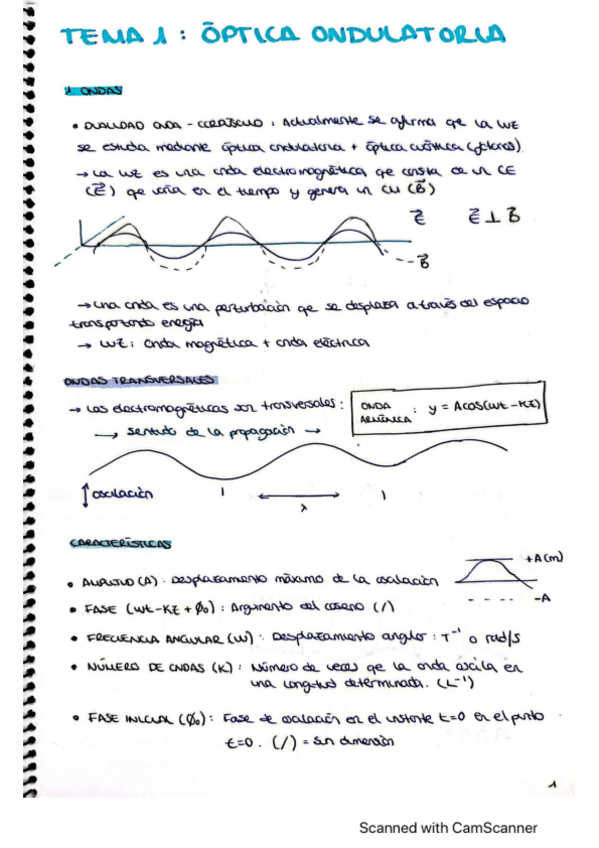 TEMA 1 : ÓPTICA ONDULATORIA
1. ONDAS
• DUALIDAD ONDA - CORPÚSCULO : Actualmente se afirma qe la LUZ
se estudia mediante óptica ondulatoria + óptica cuántica (fotones).
→ La LUZ es una onda electromagnética qe consta de un CE
(E⃗) qe varía en el tiempo y genera un CM (B⃗)
E⃗ E⃗ ⊥ B⃗
B⃗
→ una onda es una perturbación qe se desplaza a través del espacio
transportando energía
→ LUZ : Onda magnética + onda eléctrica
ONDAS TRANSVERSALES
→ Las electromagnéticas son transversales :
ONDA ARMÓNICA : y = A cos(wt - kz)
→ sentido de la propagación →
oscilación
λ
CARACTERÍSTICAS
+A (m)
• AMPLITUD (A) : Desplazamiento máximo de la oscilación
-A
• FASE (wt - kz + ϕ₀) : Argumento del coseno (/)
• FRECUENCIA ANGULAR (w) : Desplazamiento angular : T⁻¹ o rad/s
• NÚMERO DE ONDAS (K) : Número de veces qe la onda oscila en
una longitud determinada. (L⁻¹)
• FASE INICIAL (ϕ₀) : Fase de oscilación en el instante t=0 en el punto
z=0. (/) = sin dimensión
1
Scanned with CamScanner